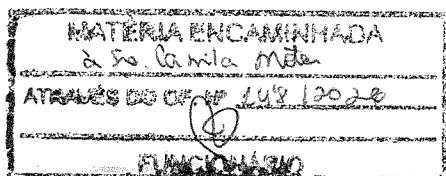 MATÉRIA ENCAMINHADA
à Sra. Camila
ATRAVÉS DO OF. Nº 148 / 2020
FUNCIONÁRIO